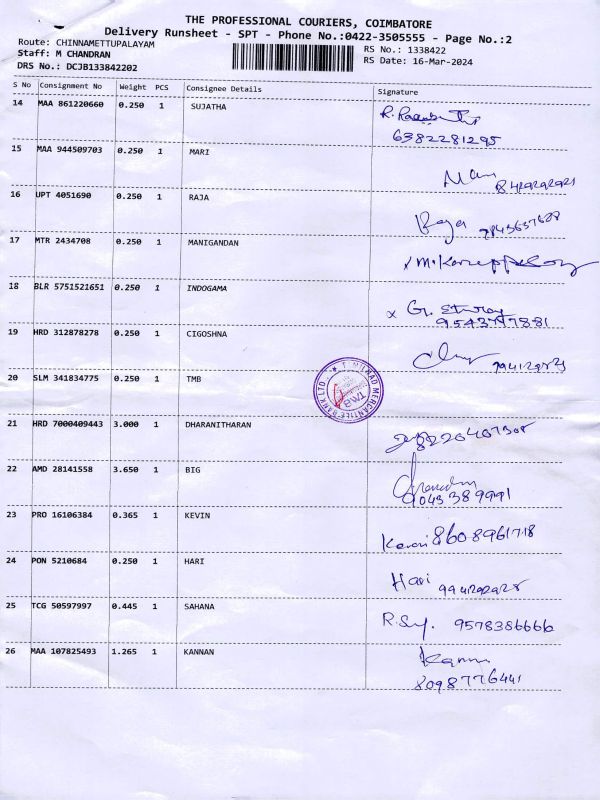 THE PROFESSIONAL COURIERS, COIMBATORE
Delivery Runsheet - SPT - Phone No.:0422-3505555 - Page No.:2
Route: CHINNAMETTUPALAYAM
Staff: M CHANDRAN
DRS No.: DCJB133842202
RS No.: 1338422
RS Date: 16-Mar-2024
S No Consignment No Weight PCS Consignee Details Signature
14 MAA 861220660 0.250 1 SUJATHA
6382281295
15 MAA 944509703 0.250 1 MARI
Mari
16 UPT 4051690 0.250 1 RAJA
Raja
17 MTR 2434708 0.250 1 MANIGANDAN
18 BLR 5751521651 0.250 1 INDOGAMA
19 HRD 312878278 0.250 1 CIGOSHNA
20 SLM 341834775 0.250 1 TMB
TAMILNAD MERCANTILE BANK LTD
TMB
21 HRD 7000409443 3.000 1 DHARANITHARAN
22 AMD 28141558 3.650 1 BIG
23 PRO 16106384 0.365 1 KEVIN
8608961718
24 PON 5210684 0.250 1 HARI
Hari
25 TCG 50597997 0.445 1 SAHANA
9578386666
26 MAA 107825493 1.265 1 KANNAN
8098776441